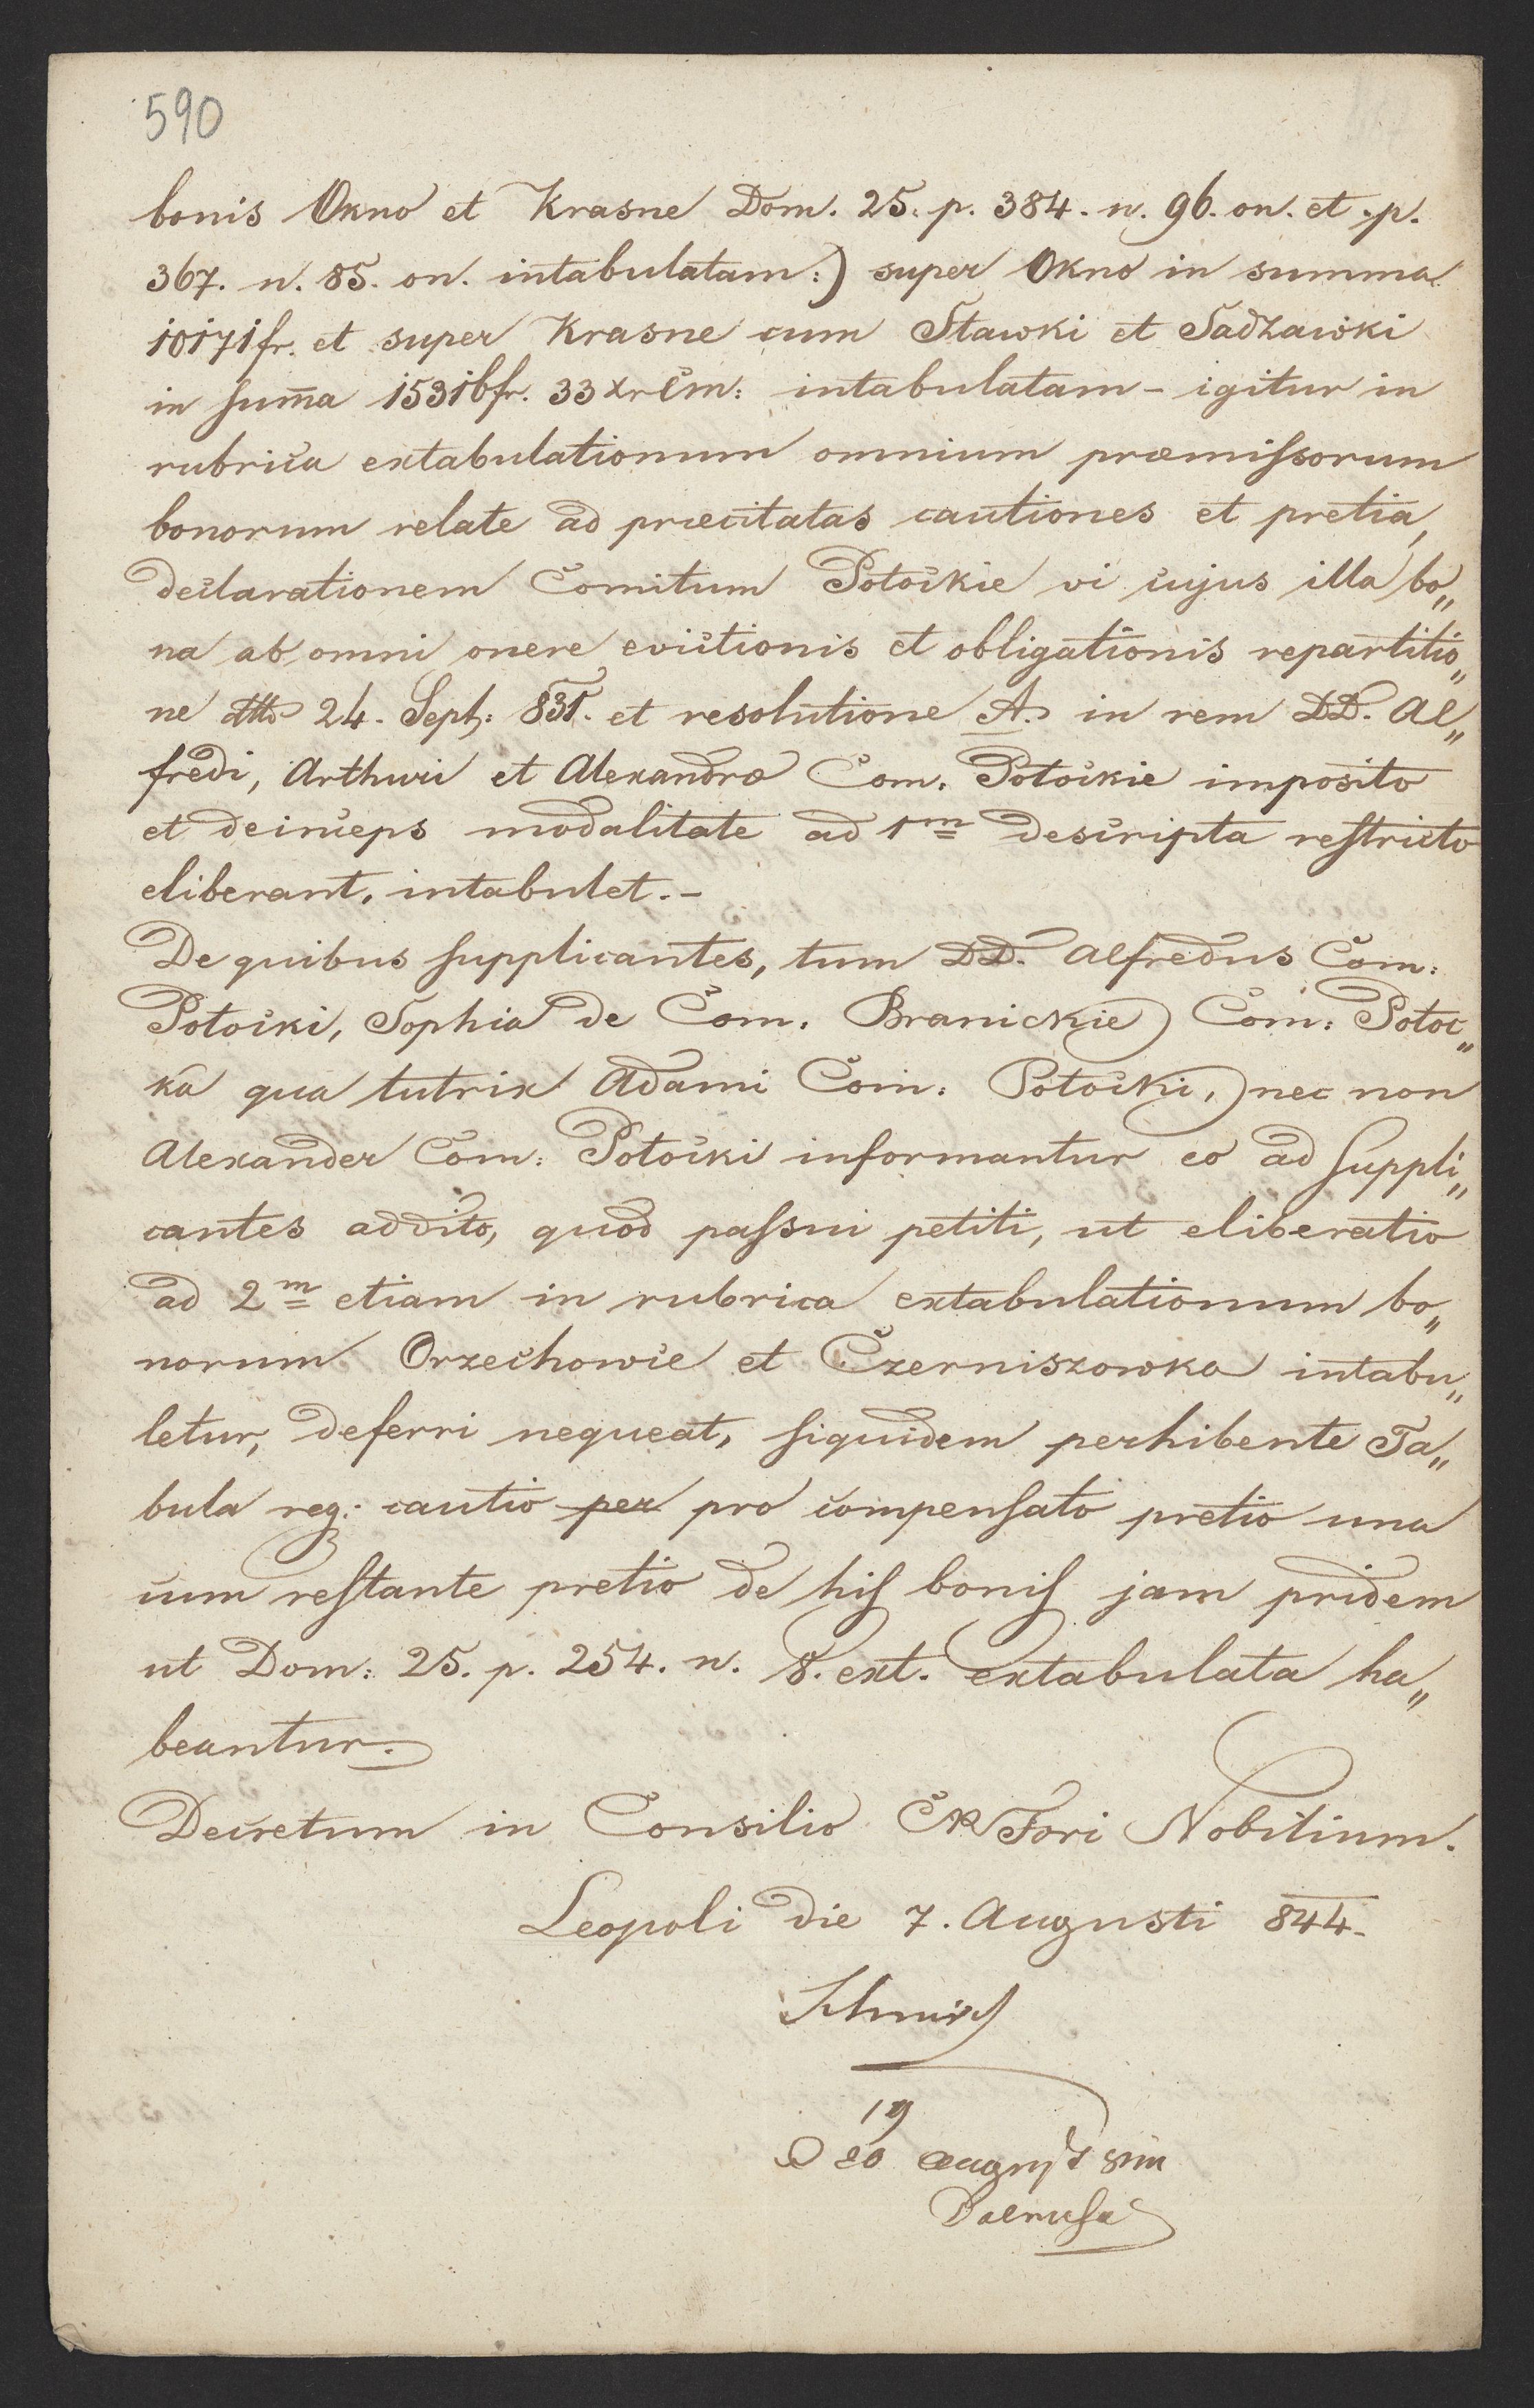 590
bonis Okno et Krasne Dom. 25. p. 384. n. 96. on. et p.
367. n. 85. on. intabulatam:) super Okno in summa
10171 fr. et super Krasne cum Stawki et Sadzawki
in sum̄a 15316 fr. 33 xr Cm: intabulatam - igitur in
rubrica extabulationum omnium præmissorum
bonorum relate ad præcitatas cautiones et pretia,
declarationem Comitum Potockie vi cujus illa bo„
na ab omni onere evictionis et obligationis repartitio„
ne dtto 24. Sept: 831. et resolutione A. in rem DD. Al„
fredi, Arthuri et Alexandræ Com. Potockie imposito
et deinceps modalitate ad 1m descripta restricto
eliberant, intabulet.-
De quibus supplicantes, tum DD. Alfredus Com:
Potocki, Sophia de Com. Branickie Com: Potoc„
ka qua tutrix Adami Com: Potocki, nec non
Alexander Com: Potocki informantur eo ad suppli„
cantes addito, quod passui petiti, ut eliberatio
ad 2m etiam in rubrica extabulationum bo„
norum Orzechowie et Czerniszowka intabu„
letur, deferri nequeat, siquidem perhibente Ta„
bula reg: cautio per pro compensato pretio una
cum restante pretio de his bonis jam pridem
ut Dom: 25. p. 254. n. 8. ext. extabulata ha„
beantur.
Decretum in Consilio CR Fori Nobilium.
Leopoli die 7. Augusti 844.
19
20 August